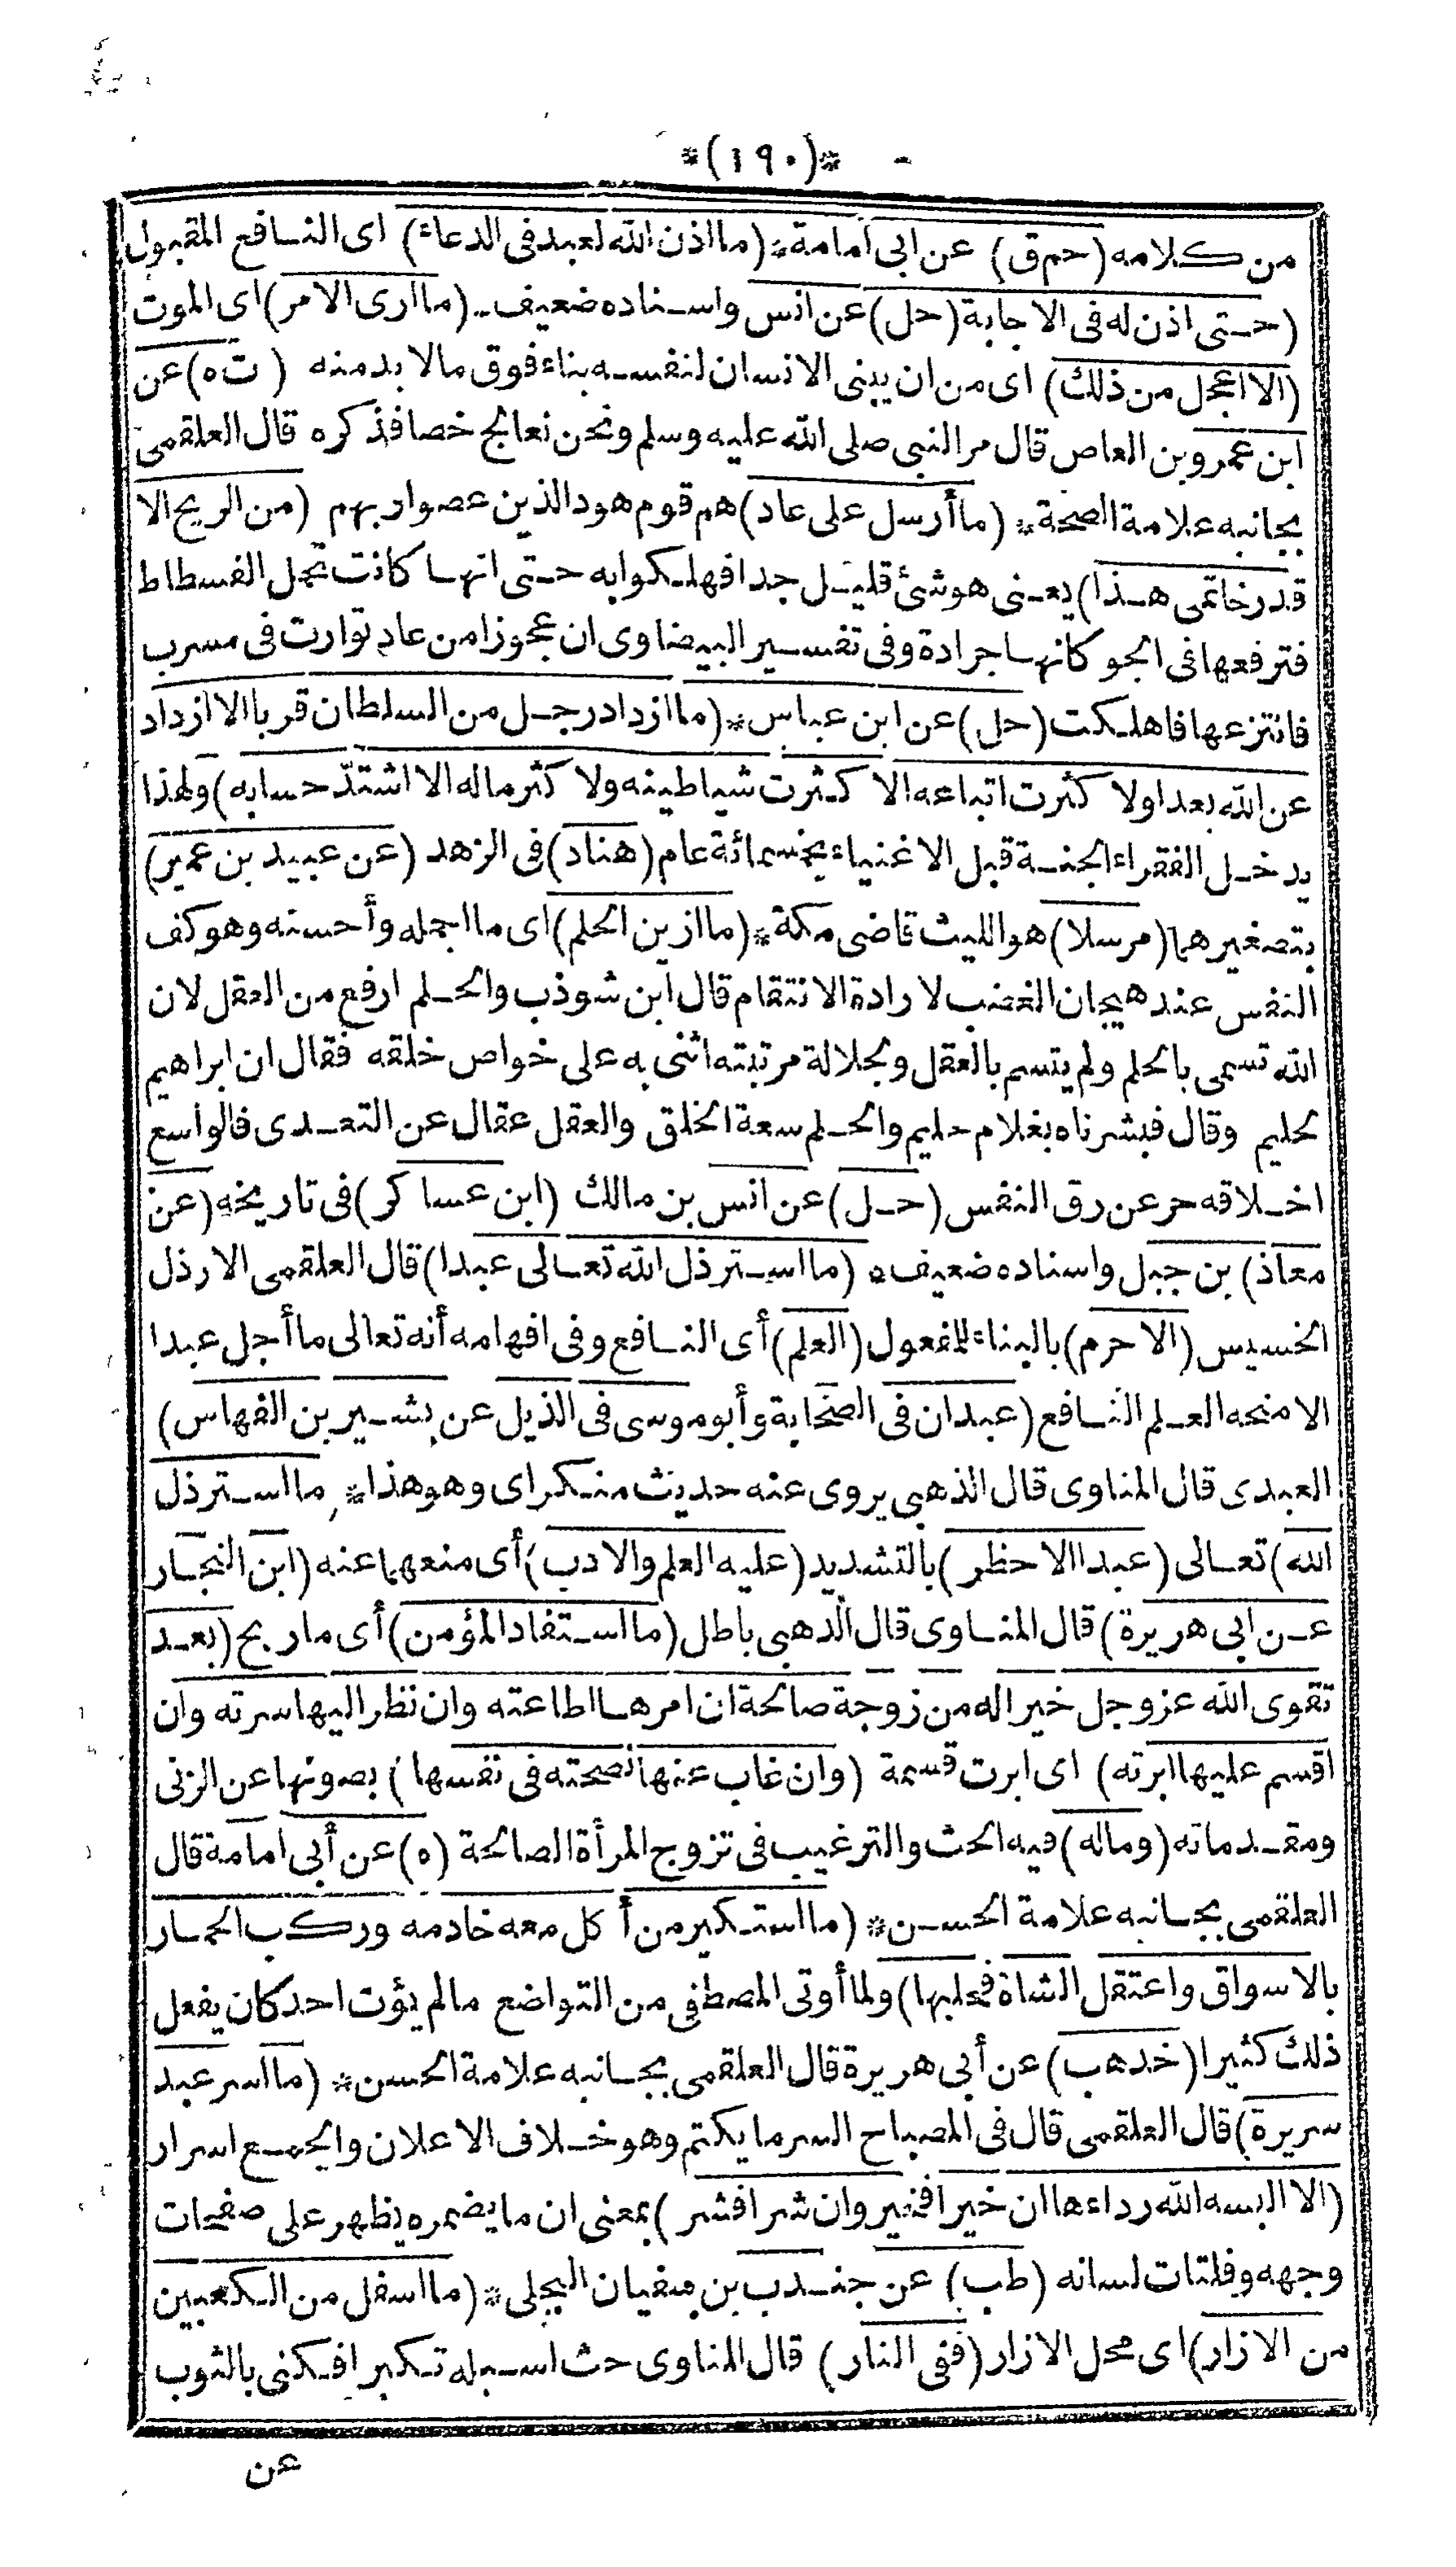 *(١٩٠)*
من كلامه (حم ق) عن ابى امامة * (ما اذن الله لعبد فى الدعاء) اى النافع المقبول
(حتى اذن له فى الاجابة (حل) عن انس واسناده ضعيف .. (ما ارى الامر) اى الموت
(الا اعجل من ذلك) اى من ان يبنى الانسان لنفسه بناء فوق ما لا بد منه (ت ه) عن
ابن عمرو بن العاص قال مر النبى صلى الله عليه وسلم ونحن نعالج خصا فذكره قال العلقمى
بجانبه علامة الصحة * (ما أرسل على عاد) هم قوم هود الذين عصوا ربهم (من الريح الا
قدر خاتمى هذا) يعنى هو شئ قليل جدا فهلكوا به حتى انها كانت تحمل الفسطاط
فترفعها فى الجو كانها جرادة وفى تفسير البيضاوى ان عجوزا من عاد توارت فى مسرب
فانتزعها فاهلكت (حل) عن ابن عباس * (ما ازداد رجل من السلطان قربا الا ازداد
عن الله بعدا ولا كثرت اتباعه الا كثرت شياطينه ولا كثر ماله الا اشتدّ حسابه) ولهذا
يدخل الفقراء الجنة قبل الاغنياء بخمسمائة عام (هناد) فى الزهد (عن عبيد بن عمير)
بتصغيرهما (مرسلا) هو الليث قاضى مكة * (ما ازين الحلم) اى ما اجمله وأحسنه وهو كف
النفس عند هيجان الغضب لارادة الانتقام قال ابن شوذب والحلم ارفع من العقل لان
الله تسمى بالحلم ولم يتسم بالعقل وبجلالة مرتبته اثنى به على خواص خلقه فقال ان ابراهيم
لحليم وقال فبشرناه بغلام حليم والحلم سعة الخلق والعقل عقال عن التعدى فالواسع
اخلاقه حر عن رق النفس (حل) عن انس بن مالك (ابن عساكر) فى تاريخه (عن
معاذ) بن جبل واسناده ضعيف * (ما استرذل الله تعالى عبدا) قال العلقمى الارذل
الخسيس (الا حرم) بالبناء للمفعول (العلم) أى النافع وفى افهامه أنه تعالى ما أجل عبدا
الا منحه العلم النافع (عبدان فى الصحابة وأبو موسى فى الذيل عن بشير بن النهاس)
العبدى قال المناوى قال الذهبى يروى عنه حديث منكر اى وهو هذا * ما استرذل
الله) تعالى (عبدا الا حظر) بالتشديد (عليه العلم والادب) أى منعهما عنه (ابن النجار
عن ابى هريرة) قال المناوى قال الذهبى باطل (ما استفاد المؤمن) أى ما ربح (بعد
تقوى الله عز وجل خيرا له من زوجة صالحة ان امرها اطاعته وان نظر اليها سرته وان
اقسم عليها ابرته) اى ابرت قسمة (وان غاب عنها نصحته فى نفسها) بصونها عن الزنى
ومقدماته (وماله) فيه الحث والترغيب فى تزوج المرأة الصالحة (ه) عن أبى امامة قال
العلقمى بجانبه علامة الحسن * (ما استكبر من أكل معه خادمه وركب الحمار
بالاسواق واعتقل الشاة فحلبها) ولما أوتى المصطفى من التواضع ما لم يؤت احد كان يفعل
ذلك كثيرا (خد هب) عن أبى هريرة قال العلقمى بجانبه علامة الحسن * (ما اسر عبد
سريرة) قال العلقمى قال فى المصباح السر ما يكتم وهو خلاف الاعلان والجمع اسرار
(الا البسه الله رداءها ان خيرا فخير وان شرا فشر) بمعنى ان ما يضمره يظهر على صفحات
وجهه وفلتات لسانه (طب) عن جندب بن سفيان البجلى * (ما اسفل من الكعبين
من الازار) اى محل الازار (ففى النار) قال المناوى حث اسبله تكبرا فكنى بالثوب
عن